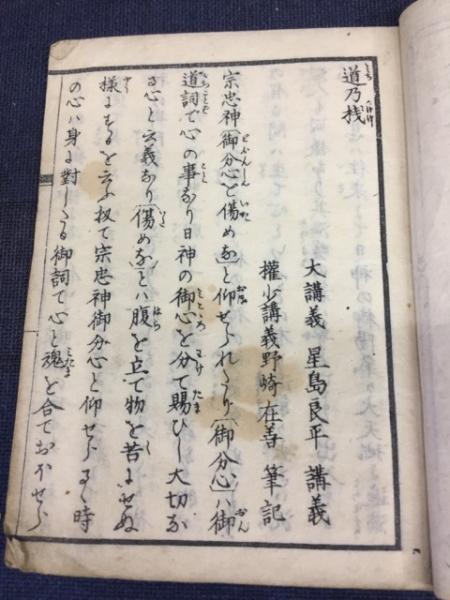 道乃栞
大講義 星島良平 講義
權少講義野崎在善 筆記
宗忠神「御分心を傷めな」と仰せられたり「御分心」ハ御
道詞で心の事なり日神の御心を分て賜ひし大切な
る心と云義なり「傷めな」とハ腹を立て物を苦にせぬ
様にするを云ふ扨て宗忠神御分心と仰せらるゝ時
の心ハ身に對したる御詞で心と魂を合ておおせら